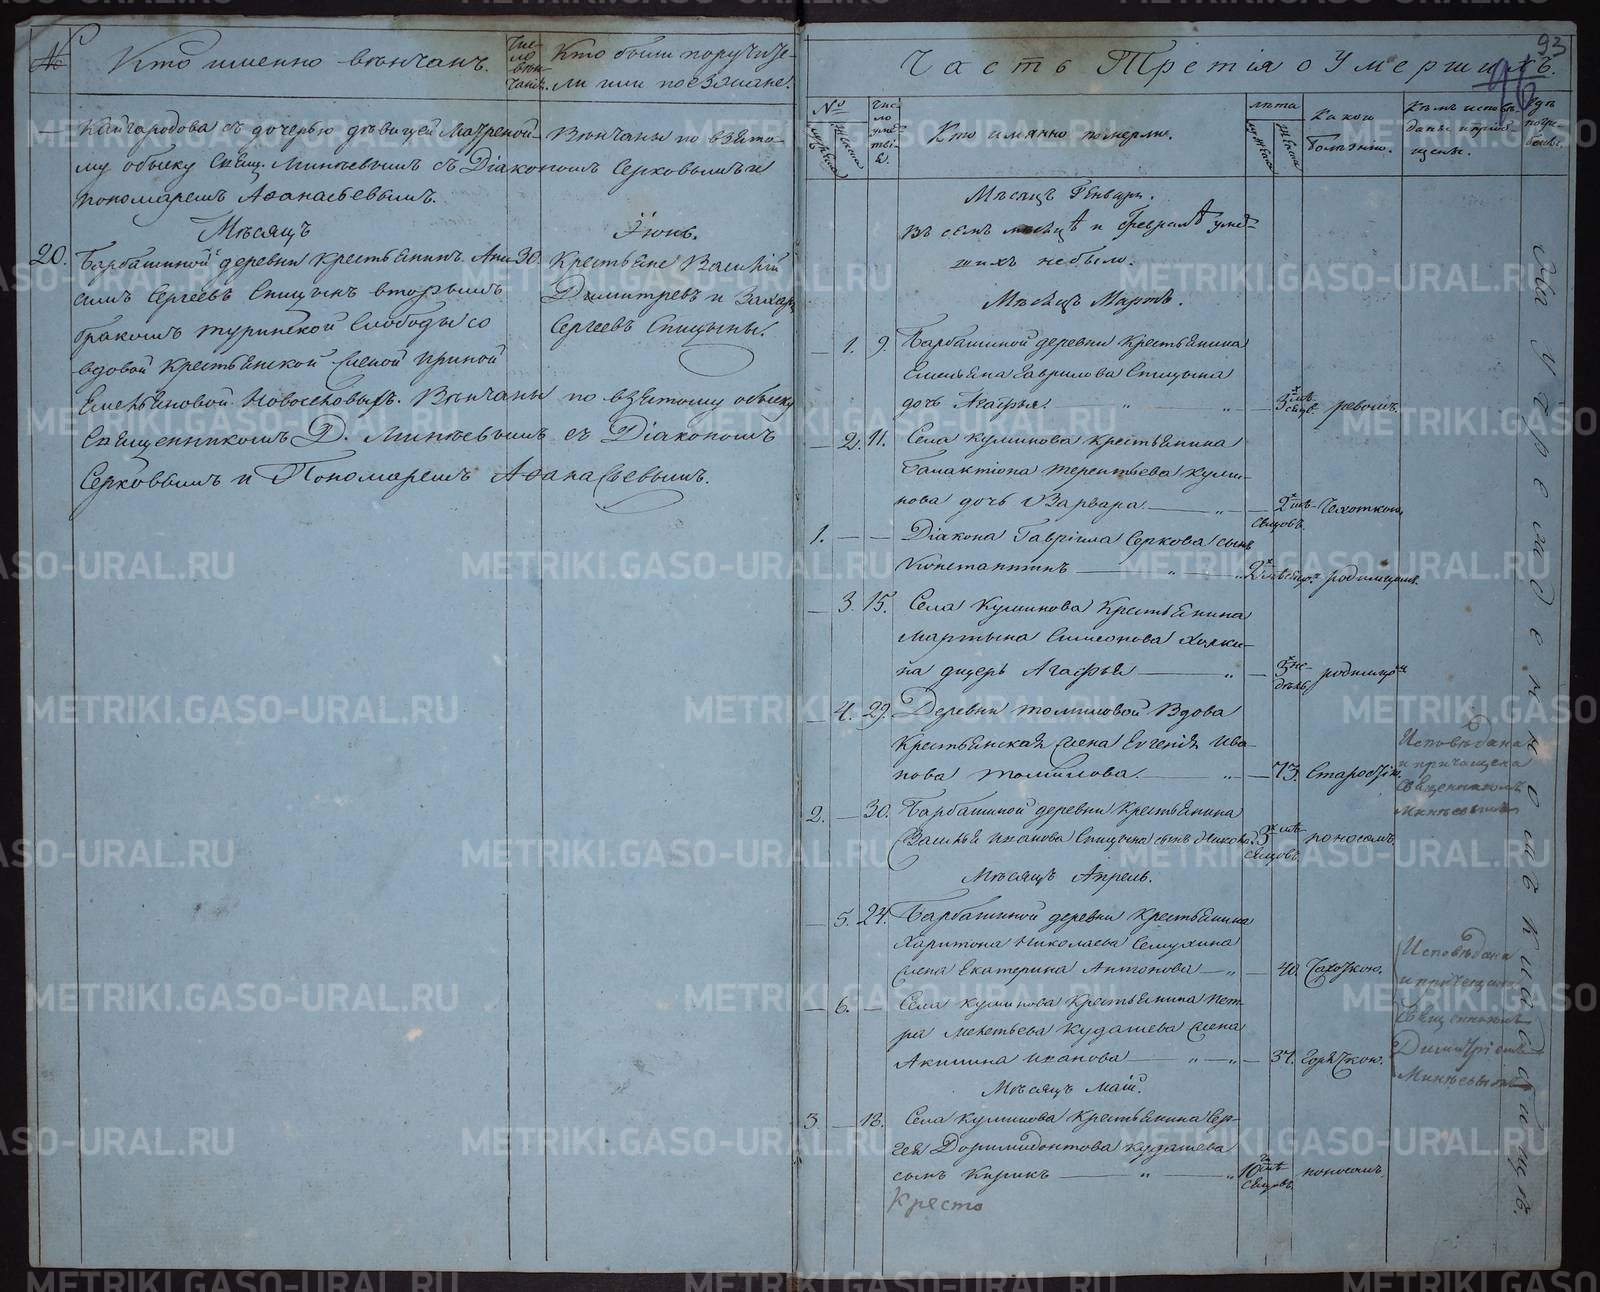 №
Кто именно вѣнчанъ.
Число вѣнчанія.
Кто были поручители или поезжане.
Кайгородова съ дочерью дѣвицей Матреной. Вѣнчаны по взято-
му обыску Свящ. Минѣевымъ съ Діакономъ Серковымъ и
пономаремъ Аѳанасьевымъ.
Мѣсяцъ Іюнь.
20.
Барбашиной деревни крестьянинъ Ани-
симъ Сергеевъ Спицынъ вторымъ
бракомъ Туринской Слободы со
вдовой крестьянской женой Ириной
Емельяновой Новоселовыхъ. Вѣнчаны по взятому обыску
Священникомъ Д. Минѣевымъ съ Діакономъ
Серковымъ и Пономаремъ Аѳанасьевымъ.
30.
Крестьяне Василій
Димитревъ и Захаръ
Сергеевъ Спицыны.
93
96
Часть Третія о Умершихъ.
№
Кто имянно померли.
лѣта
Какою
болѣзнію.
Мѣсяцъ Генварь.
въ семъ месяцѣ и Февралѣ умер-
шихъ небыло.
Мѣсяцъ Мартъ.
1. 9. Барбашиной деревни крестьянина
Емельяна Гаврилова Спицына
дочь Агафья. 3х мѣсяцв. ревомъ.
2. 11. Села Куминова крестьянина
Галактіона Терентьева Куми-
нова дочь Варвара 2х мѣсяцовъ. Чехоткой
1. Діакона Гавріила Серкова сынъ
Константинъ 2х родимцомъ.
3. 15. Села Куминова Крестьянина
Мартына Симеонова
на дщерь Агафья 3х недѣль родимцо
4. 29. Деревни Томиловой Вдова
Крестьянская жена Евгенія Ива-
нова Томилова. 73. Старостію.
Исповѣдана
и причащена
Священникомъ
Минѣевымъ
2. 30. Барбашиной деревни Крестьянина
Василья Иванова Спицына сынъ Никола. 3х мѣсяцовъ поносомъ.
Мѣсяцъ Апрель.
5. 24. Барбашиной деревни Крестьянина
Харитона Николаева Семухина
жена Екатерина Антонова 40. Чахоткою.
Исповѣдана
и причещена
Священникомъ
Димитріемъ
Минѣевымъ
6. Села Куминова Крестьянина Пет-
ра Мекетьева Кудашева жена
Акилина Иванова 37. горячкою.
Мѣсяцъ Маій.
3. 18. Села Куминова Крестьянина Сер-
гея Доримедонтова Кудашева
сынъ Кирикъ 10ти мѣсяцовъ. поносомъ.
Кресто
METRIKI.GASO-URAL.RU